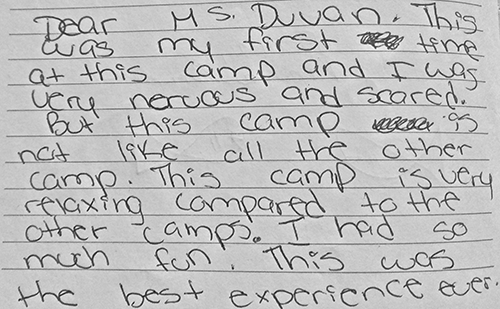 Dear Ms. Duvan. This
was my first time
at this camp and I was
very nervous and scared.
But this camp is
not like all the other
camp. This camp is very
relaxing compared to the
other camps. I had so
much fun. This was
the best experience ever.